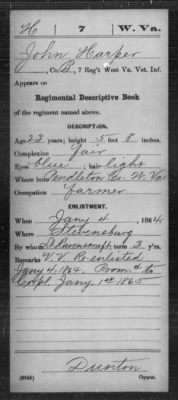 H 7 W. Va.
John Harper
, Co. B, 7 Reg't West Va. Vet. Inf.
Appears on
Regimental Descriptive Book
of the regiment named above.
DESCRIPTION.
Age 23 years; height 5 feet 8 inches.
Complexion fair
Eyes blue; hair light
Where born Pendleton Co. W. Va.
Occupation farmer
ENLISTMENT.
When Jany 4, 1864.
Where Stevensburg
By whom Lt Ravenscraft; term 3 y'rs.
Remarks V.V. Re-enlisted
Jany 4, 1864. Prom to
Corpl. Jany. 1st 1865
Dunton
Copyist.